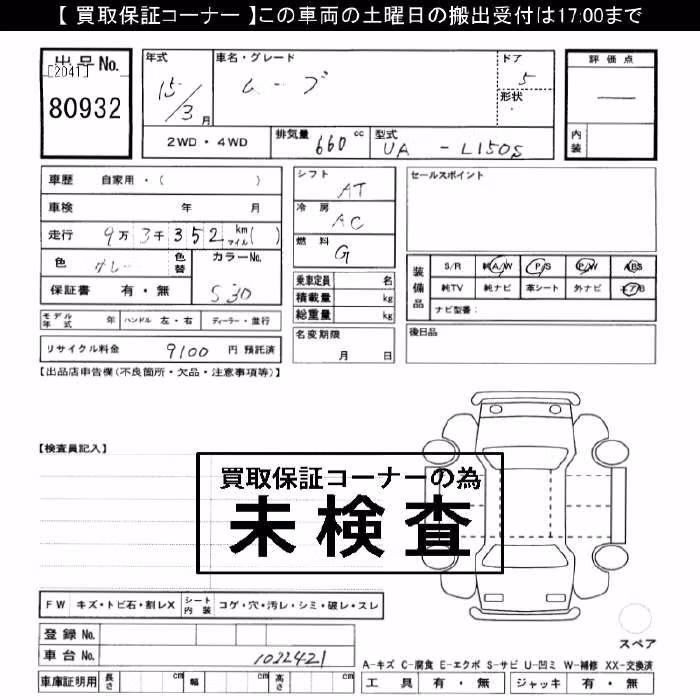 【 買取保証コーナー 】この車両の土曜日の搬出受付は17:00まで
出品No.
[2041]
80932
年式
15/3月
車名・グレード
ムーブ
ドア
5
形状
評価点
―
内装
2WD・4WD
排気量 660 cc
型式 UA - L150S
車歴 自家用・( )
車検 年 月
走行 9万3千352 km マイル( )
色 グレー
色替
カラーNo.
S30
保証書 有・無
モデル年式 年 ハンドル 左・右 ディーラー・並行
リサイクル料金 9100 円 預託済
シフト
AT
冷房
AC
燃料
G
乗車定員 名
積載量 kg
総重量 kg
名変期限
月 日
セールスポイント
装備品
S/R 純A/W P/S P/W ABS
純TV 純ナビ 革シート 外ナビ エアB
ナビ型番:
後日品
【出品店申告欄(不良箇所・欠品・注意事項等)】
【検査員記入】
買取保証コーナーの為
未検査
FW キズ・トビ石・割レX シート内装 コゲ・穴・汚レ・シミ・破レ・スレ
登録No.
車台No. 1022421
車庫証明用 長さ cm 幅 cm 高さ cm
スペア
A-キズ C-腐食 E-エクボ S-サビ U-凹ミ W-補修 XX-交換済
工具 有・無 ジャッキ 有・無